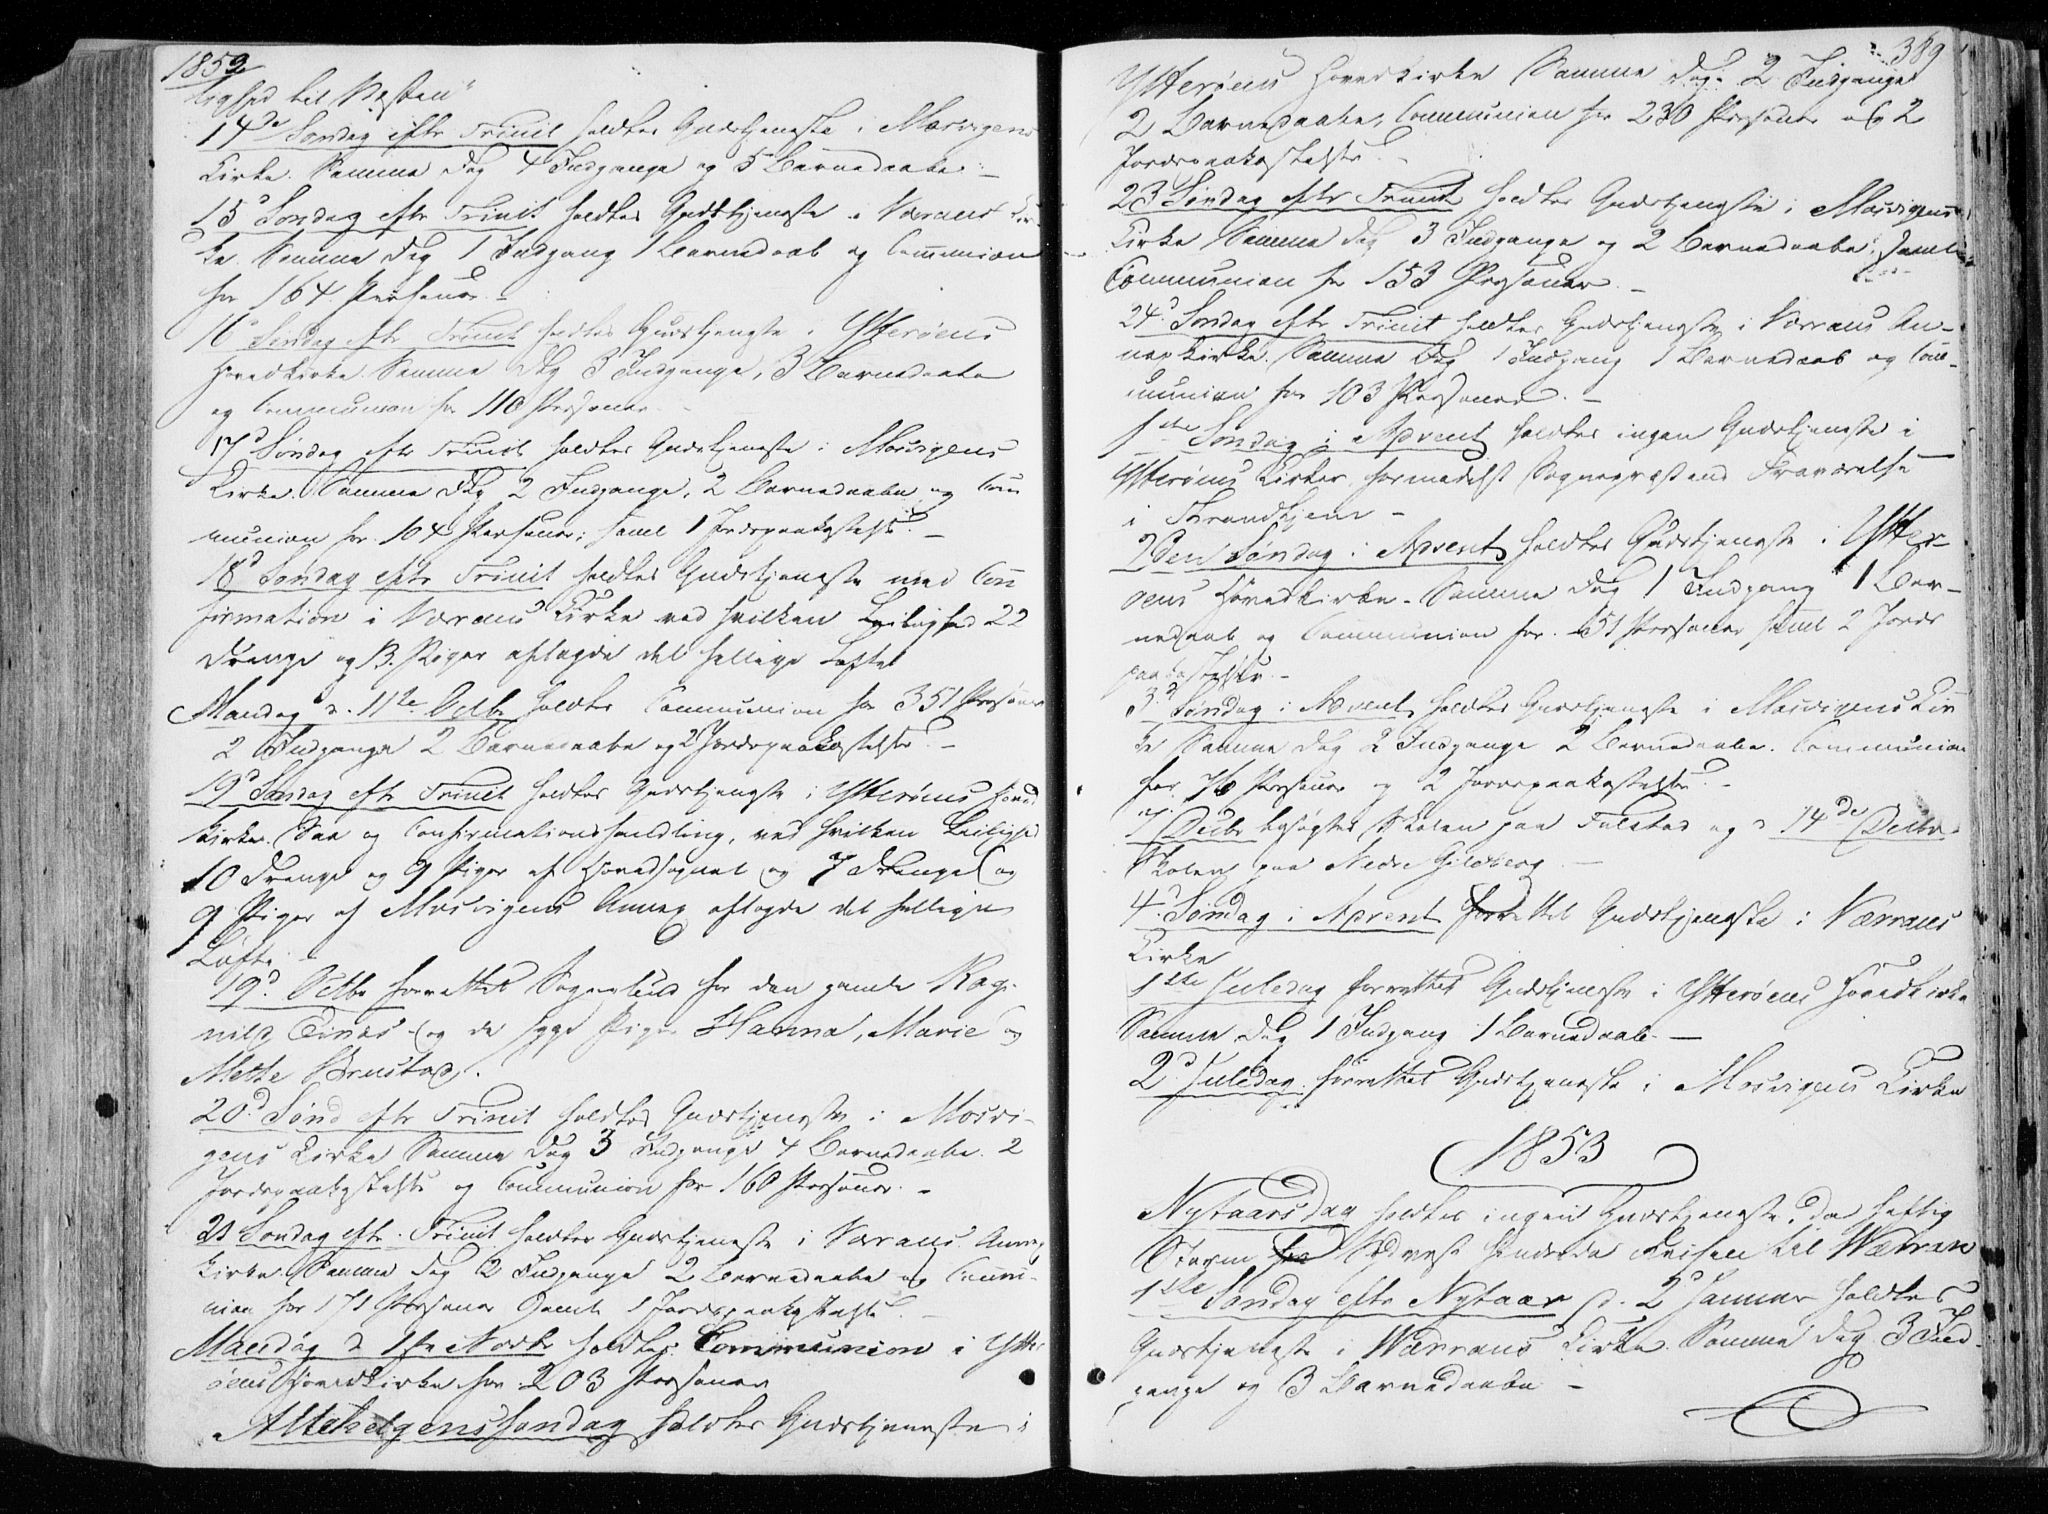 1852
lighed til Næsten"
14de Søndag efter Trinit holdtes Gudstjeneste i Mosvigens
Kirke. Samme Dag 4 Indgange og 5 Barnedaabe. –
15d Søndag eftr Trinit holdtes Gudstjeneste i Værrans Kir-
ke. Samme Dag 1 Indgang 1 Barnedaab og Communion
for 164 Personer –
16d Søndag eftr Trinit holdtes Gudstjeneste i Ytterøens
Hovedkirke. Samme Dag 3 Indgange, 3 Barnedaabe
og Communion for 110 Personer –
17d Søndag eftr Trinit holdtes Gudstjeneste i Mosvigens
Kirke. Samme Dag 2 Indgange, 2 Barnedaabe og Com
munion for 104 Personer; samt 1 Jordpaakastelse –
18d Søndag eftr Trinit holdtes Gudstjeneste med Con
firmation i Værrans Kirke ved hvilken Leilighed 22
Drenge og 13. Piger aflagde det hellige Løfte
Mandag d. 11te Octbr holdtes Communion for 351 Personer
2 Indgange 2 Barnedaabe og 2 Jordpaakastelse –
19d Søndag eftr Trinit holdtes Gudstjeneste i Ytterøens Hoved
kirke. Saa og Confirmationshandling, ved hvilken Leilighed
10 Drenge og 9 Piger af Hovedsognet og 7 Drenge og
9 Piger af Mosvigens Annex aflagde det hellige
Løfte –
19d. Octbr forrettet Sognebud for den gamle Rag-
nild og de syge Piger Hanna, Marie og
Mette Brustad.
20d Sønd eftr Trinit holdtes Gudstjeneste i Mosvi-
gens Kirke Samme Dag 3 Indgange 4 Barnedaabe. 2
Jordpaakastelse og Communion for 160 Personer. –
21 Søndag eftr. Trinit holdtes Gudstjeneste i Værrans Annex
kirke. Samme Dag 2 Indgange 2 Barnedaabe og Commu-
nion for 171 Personer samt 1 Jordpaakastelse. –
Mandag d 1te Novbr holdtes Communion i Ytter
øens Hovedkirke for 203 Personer
Allehelgenssøndag holdtes Gudstjeneste i
389
Ytterøens Hovedkirke Samme Dag. 2 Indgange
2 Barnedaabe, Communion for 230 Personer og 2
Jordpaakastelse. –
23 Søndag eftr Trinit holdtes Gudstjeneste i Mosvigens
Kirke Samme Dag 3 Indgange og 2 Barnedaabe, samt
Communion for 153 Personer. –
24d. Søndag eftr Trinit holdtes Gudstjeneste i Værrans An-
nexkirke. Samme Dag 1 Indgang 1 Barnedaab og Com-
munion for 103 Personer. –
1ste Søndag i Advent holdtes ingen Gudstjeneste i
Ytterøens Kirker formedelst Sognepræstens Fraværelse
i Throndhjem –
2den Søndag i Advent holdtes Gudstjeneste i Ytter-
øens Hovedkirke. Samme Dag 1 Indgang 1 Bar-
nedaab og Communion for 51 Personer, samt 2 Jords
paakastelse. –
3d Søndag i Advent holdtes Gudstjeneste i Mosvigens Kir
ke Samme Dag 2 Indgange 2 Barnedaabe. Communion
for 76 Personer og 2 Jordspaakastelse. –
Decbr besøgtes Skolen paa Falstad og d 14de Decbr
Skolen paa Nedre Gilberg –
4d. Søndag i Advent forrettet Gudstjeneste i Værrans
Kirke
1ste Juledag forrettet Gudstjeneste i Ytterøens Hovedkirke
Samme Dag 1 Indgang 1 Barnedaab. –
2d Juledag forrettet Gudstjeneste i Mosvigens Kirke
1853
Nytaarsdag holdtes ingen Gudstjeneste, da heftig
Storm fra Sydvest hindrede Reisen til Værran
1ste Søndag eftr Nytaar d. 2 Januar holdtes
Gudstjeneste i Værrans Kirke. Samme Dag 3 Ind-
gange og 3 Barnedaabe –